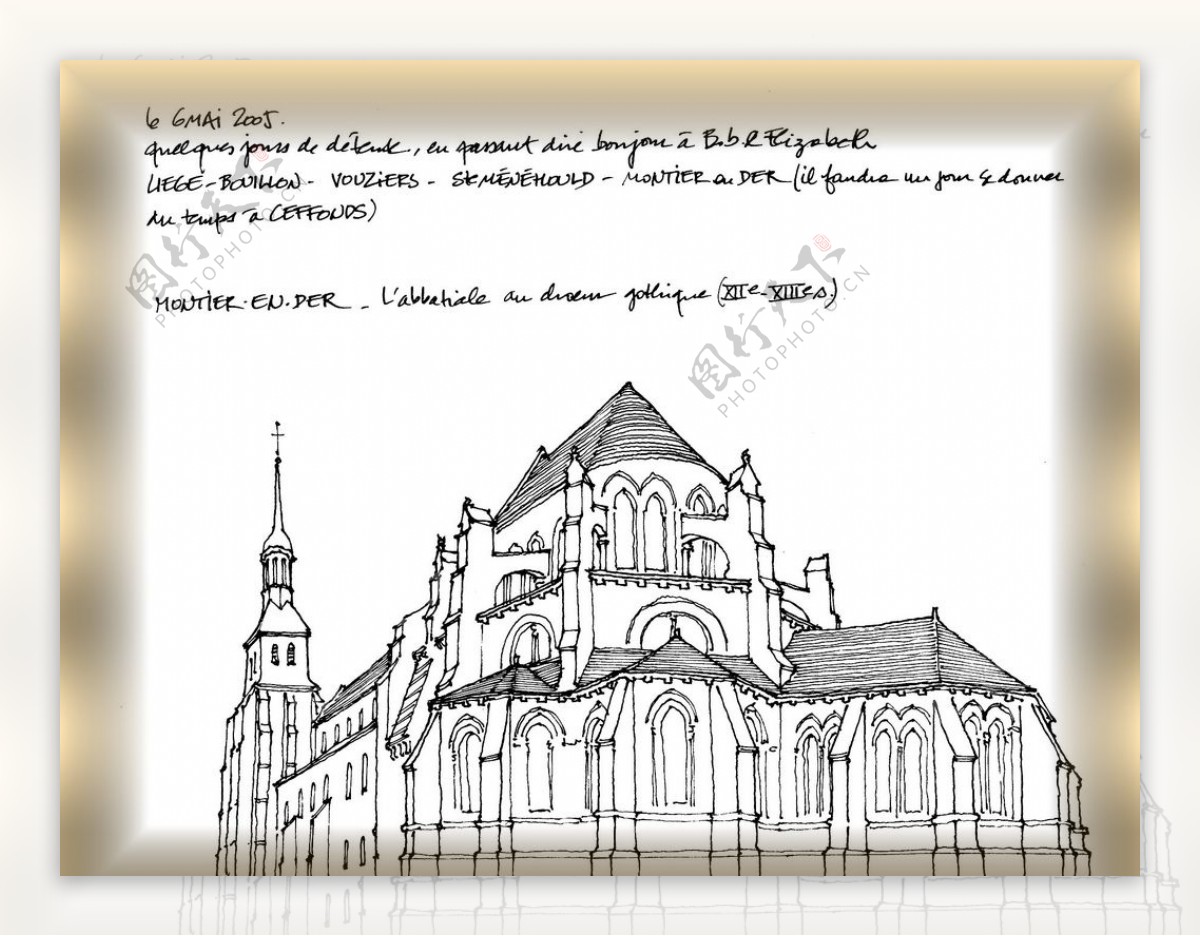 le 6 MAI 2005.
quelques jours de détente, en passant dire bonjour à Bob & Elizabeth
LIEGE - BOUILLON - VOUZIERS - St MÉNÉHOULD - MONTIER en DER (il faudra un jour se donner
du temps à CEFFONDS)
MONTIER-EN-DER - L'abbatiale au choeur gothique (XIIe-XIIIe s.)
图行天下
PHOTOPHOTO.CN
图行天下
PHOTOPHOTO.CN